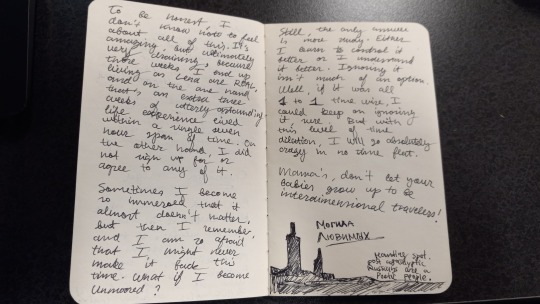 To be honest, I
don't know how to feel
about all of this. It's
amazing, but ultimately
very draining, because
those weeks I end up
living as are REAL,
and on the one hand
that's an extra three
weeks of utterly astounding
life experience lived
within a single seven
hour span of time. On
the other hand, I did
not sign up for or
agree to any of it.
Sometimes I become
so immersed that it
almost doesn't matter,
but then I remember
and I am so afraid
that I might never
make it back this
time. What if I become
unmoored?
Still, the only answer
is more study. Either
I learn to control it
better or I understand
it better. Ignoring it
isn't much of an option.
Well, if it was all
1 to 1 time wise, I
could keep on ignoring
it, sure. But with
this level of time
dilation, I will go absolutely
crazy in no time flat.
Mama's, don't let your
babies grow up to be
interdimensional travelers!
МОГИЛА
ЛЮБИМЫХ
spot.
post apocalyptic
Russians are a
Poetic People.